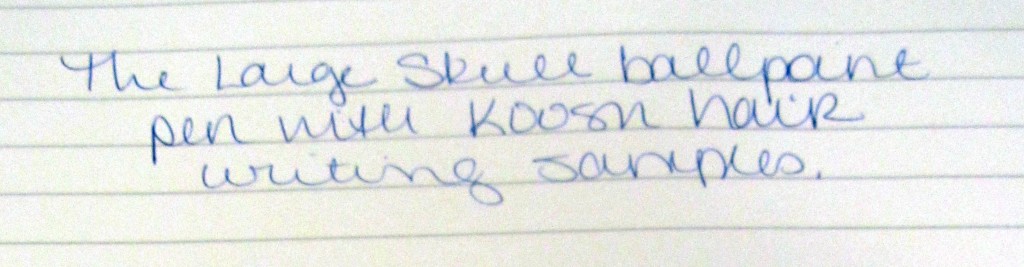 The Large Skull ballpoint
pen with Koosh hair
writing samples.